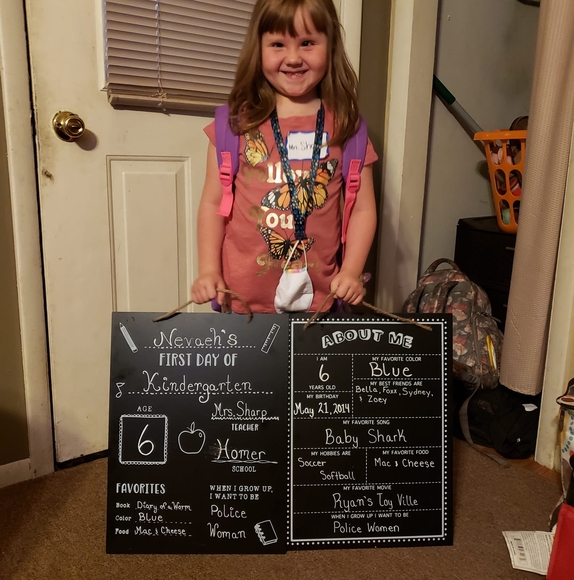 Mrs. Sharp
Nevaeh's
FIRST DAY OF
Kindergarten
AGE
6
Mrs. Sharp
TEACHER
Homer
SCHOOL
FAVORITES
Book Diary of a Worm
Color Blue
Food Mac & Cheese
WHEN I GROW UP,
I WANT TO BE
Police
Woman
ABOUT ME
I AM
6
YEARS OLD
MY FAVORITE COLOR
Blue
MY BIRTHDAY
May 21, 2014
MY BEST FRIENDS ARE
Bella, Foxx, Sydney,
& Zoey
MY FAVORITE SONG
Baby Shark
MY HOBBIES ARE
Soccer
Softball
MY FAVORITE FOOD
Mac & Cheese
MY FAVORITE MOVIE
Ryan's Toy Ville
WHEN I GROW UP I WANT TO BE
Police Women